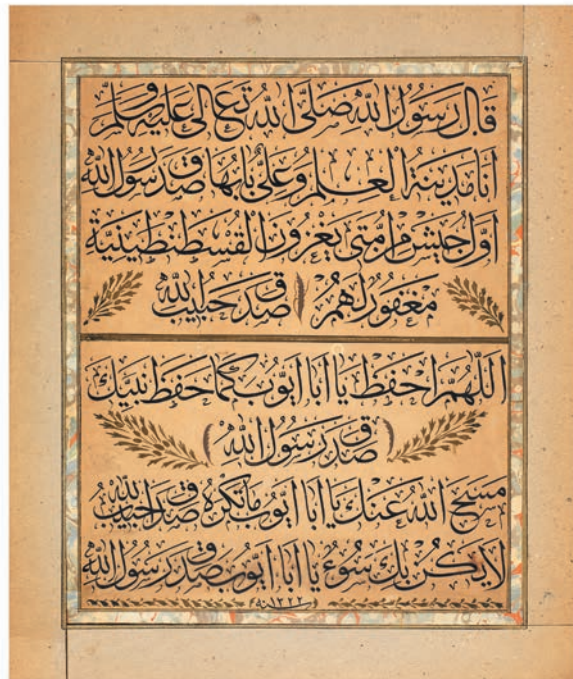 قَالَ رَسُولُ اللّٰهِ صَلَّى اللّٰهُ تَعَالَى عَلَيْهِ وَسَلَّمَ
اَنَا مَدِينَةُ الْعِلْمِ وَعَلِىٌّ بَابُهَا صَدَقَ رَسُولُ اللّٰه
اَوَّلُ جَيْشٍ مِنْ اُمَّتِى يَغْزُونَ الْقُسْطَنْطِينِيَّةَ
مَغْفُورٌ لَهُمْ صَدَقَ حَبِيبُ اللّٰه
اَللّٰهُمَّ احْفَظْ يَا اَبَا اَيُّوبَ كَمَا حَفِظَ نَبِيَّكَ
(صَدَقَ رَسُولُ اللّٰه)
مَسَحَ اللّٰهُ عَنْكَ يَا اَبَا اَيُّوبَ مَا تَكْرَهُ صَدَقَ حَبِيبُ اللّٰه
لَا يَكُنْ بِكَ سُوءٌ يَا اَبَا اَيُّوبَ صَدَقَ رَسُولُ اللّٰه
١٣٢٢